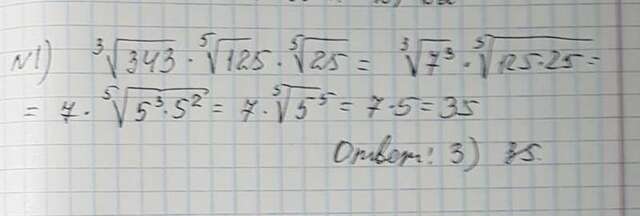 №1) ∛343 · ⁵√125 · ⁵√25 = ∛7³ · ⁵√125·25 =
= 7 · ⁵√5³·5² = 7 · ⁵√5⁵ = 7·5 = 35
Ответ: 3) 35.